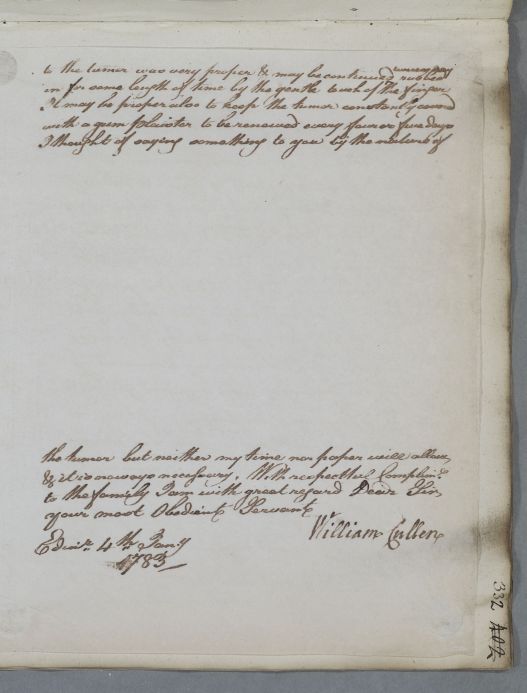 to the tumor was very proper & may be continued rubbed
in for some length of time by the gentle touch of the finger
It may be proper also to keep the tumor constantly coverd
with a gum plaister to be renewed every four or five days
I thought of saying something to you by the nature of
the tumor but neither my time nor paper will allow
& it is noways necessary. With respectful Complimts
to the family I am with great regard Dear Sir
your most Obedient Servant
William Cullen
Edinr. 4th Jany
1783
332 402